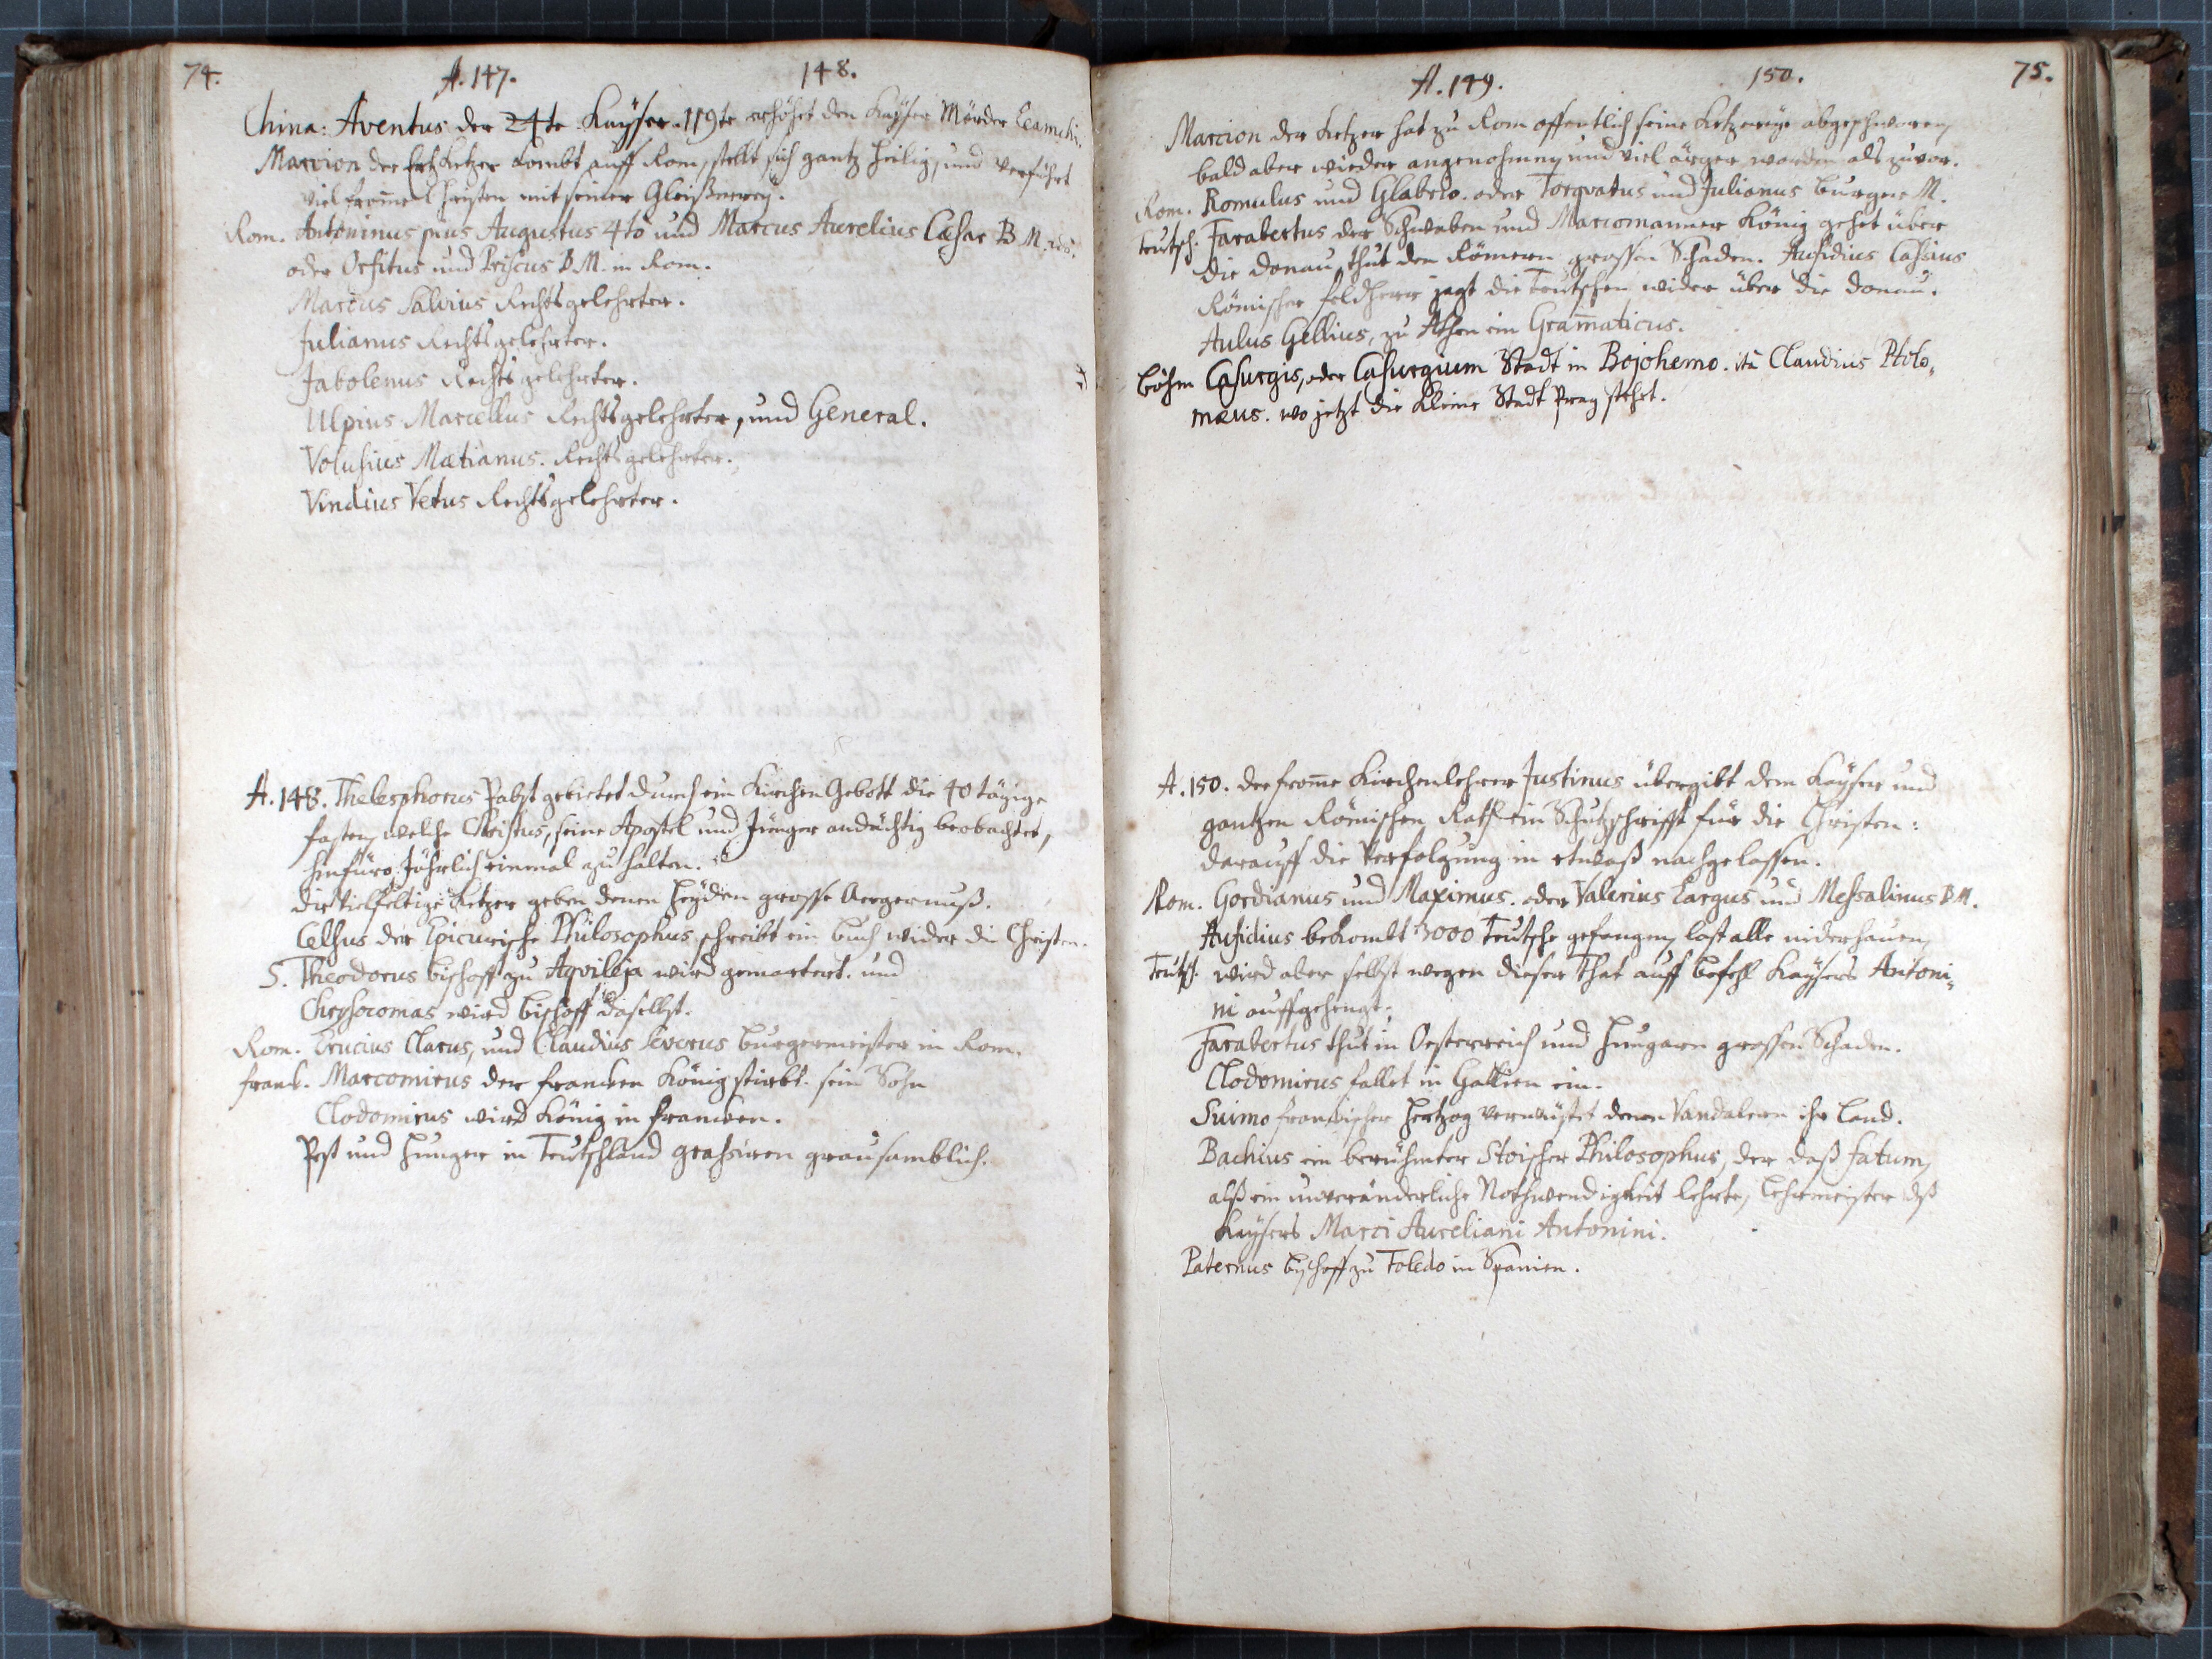 74.
A. 147.
148.
China: Aventus der 24te Kaÿser. 119te erhöhet den Kaÿser Mörder Leamchi.
Marcion der Ertzketzer kombt auff Rom, stellt sich gantz heilig, und verführt
viel from̅e Christen mit seiner Gleißnereÿ.
Rom. Antoninus pius Augustus 4to und Marcus Aurelius Cæsar B M. 2do.
oder Orfitus und Priscus B M. in Rom.
Marcus Salvius Rechtsgelehrter.
Julianus Rechtsgelehrter.
Jabolenus Rechtsgelehrter.
Ulpius Marcellus Rechtsgelehrter, und General.
Volusius Mætianus. Rechtsgelehrter.
Vindius Vetus Rechtsgelehrter.
A. 148. Thelesphorus Pabst gebietet durch ein Kirchen Gebott die 40tägige
fasten, welche Christus, seine Apostel und Jünger andächtig beobachtet,
hinfüro Jährlich einmal zu halten.
die Vielfeltige Ketzer geben denen Heÿden grosse Aergernuß.
Celsus der Epicurische Philosophus schreibt ein buch wider die Christen.
S. Theodorus bischoff zu Aqvileja wird gemartert. und
Chrysocomas wird bischoff daselbst.
Rom. Brucius Clarus, und Claudius Severus burgermeister in Rom.
franck. Marcomirus der francken König stirbt. sein Sohn
Clodomirus wird König in francken.
Pest und hunger in Teutschland grahsiren grausamblich.
A. 149.
150.
75.
Marcion der Ketzer hat zu Rom offentlich seine Ketzereÿe abgeschworen,
bald aber wieder angenohmen, und viel ärger worden als zuvor.
Rom. Romulus und Glabrio. oder Torqvatus und Julianus burger M.
teutsch. Farabertus der Schwaben und Marcomanner König gehet über
die donau, thut den Römern grossen Schaden. Aufidius Cassius
Römischer feldherr jagt die Teutschen wider über die donau.
Aulus Gellius, zu Athen ein Gram̅aticus.
böhm Casurgis, oder Casurgium Stadt in Bojohemo. ita Claudius Ptolo,
mæus. wo jetzt die Kleine Stadt Prag stehet.
A. 150. der from̅e Kirchenlehrer Justinus übergibt dem Kaÿser und
gantzen Römischen Rath ein Schutzschrifft für die Christen:
darauff die Verfolgung in etwaß nachgelassen.
Rom. Gordianus und Maximus. oder Valerius Largus und Messalinus B M.
Aufidius bekombt 3000 Teutsche gefangen, last alle niderhauen,
Teutsch. wird aber selbst wegen dieser that auff befehl Kaÿsers Antoni,
ni auffgehengt.
Farabertus thut in Oesterreich und Hungarn grossen Schaden.
Clodomirus fallet in Gallien ein.
Suimo franckischer Hertzog verwüstet denen Vandalern ihr Land.
Bachius ein berühmter Stoischer Philosophus, der daß fatum,
alß ein unveränderliche Nothwendigkeit lehrte, Lehrmeister deß
Kaÿsers Marci Aureliani Antonini.
Paternus bischoff zu Toledo in Spanien.